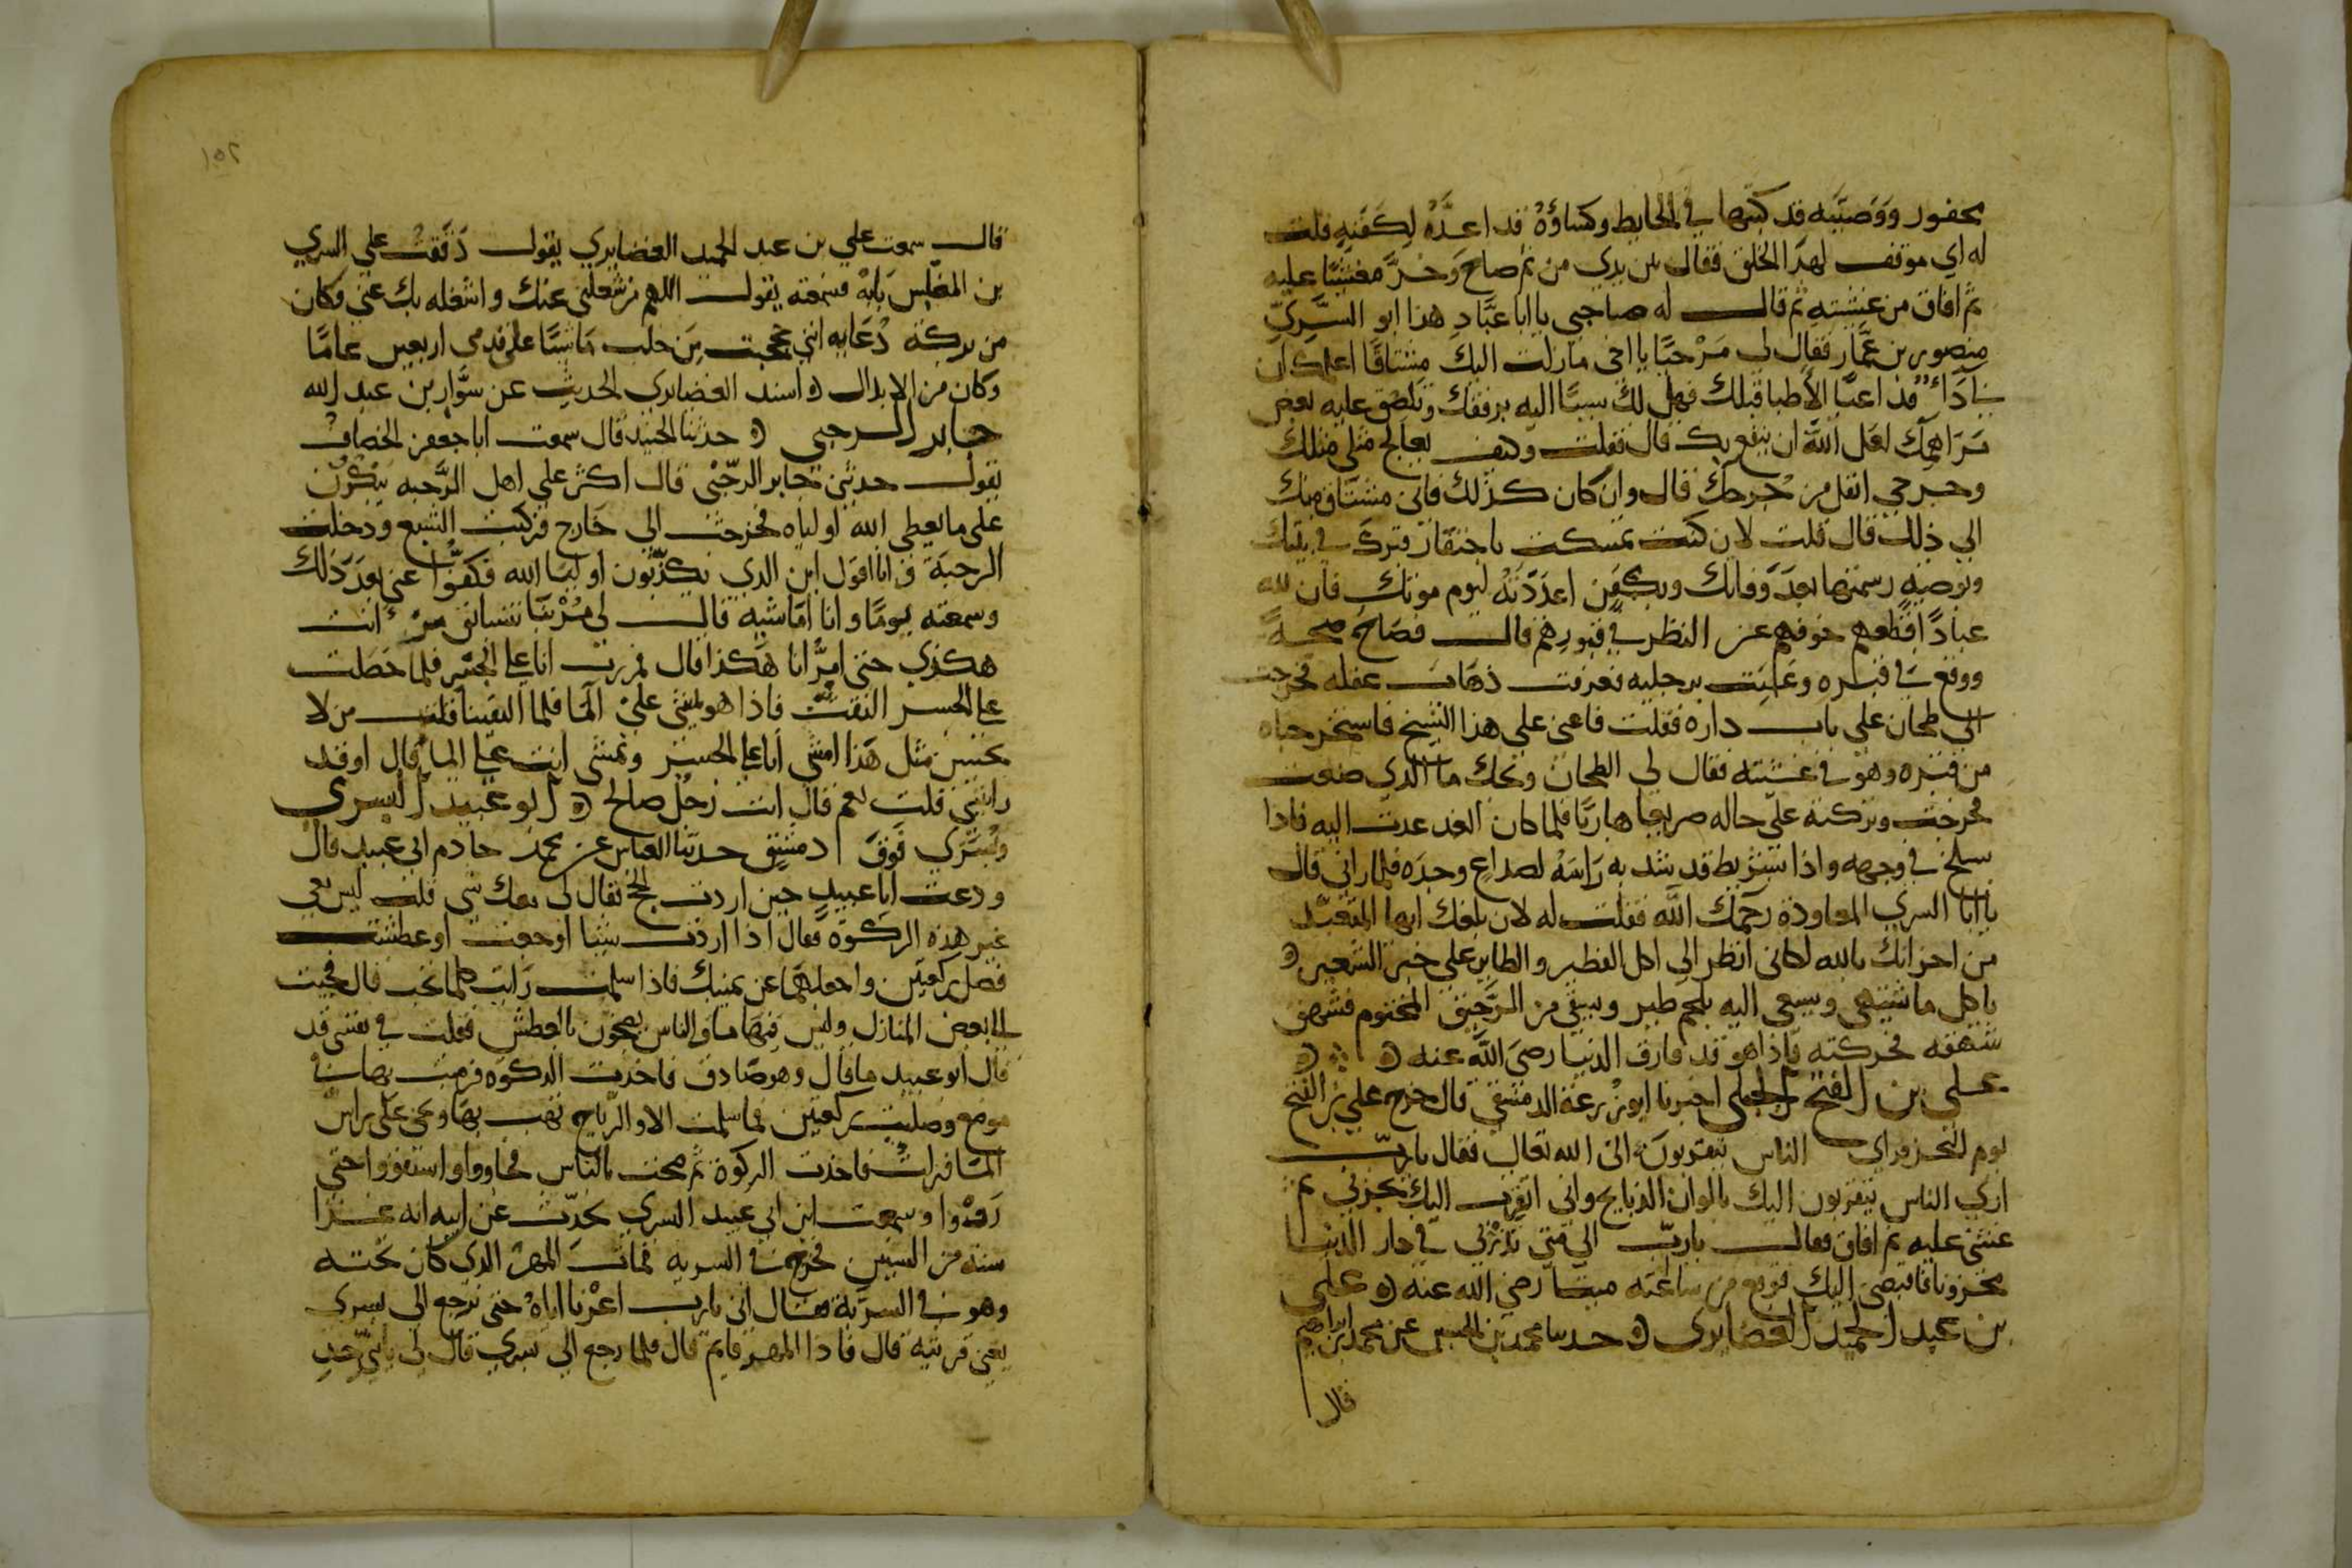 محفور ووصيته قد كتبها في الحايط وكساؤه قد اعده لكفنه فقلت
له اي موقف لهذا الخلق فقال بين يدي من ثم صاح وخر مغشيا عليه
ثم افاق من غشيته ثم قال له صاحبي يا ابا عباد هذا ابو السري
منصور بن عمار فقال لي مرحبا يا اخي ما زلت اليك مشتاقا اعلمك ان
بي داء قد اعيا الاطبا قبلك فهل لك سببا اليه برفقك وتلصق عليه بعض
مراهمك لعل الله ان ينفع بك قال فقلت وكيف يعالج مثلي مثلك
وجرحي اثقل من جرحك قال وان كان كذلك فاني مشتاق منك
الى ذلك قال قلت لان كنت تمسكت باحتفار قبرك في بيتك
وبوصية رسمتها بعد وفاتك وبكفن اعددته ليوم موتك فان لله
عبادا اقطعهم خوفهم عن النظر في قبورهم قال فصاح صيحة
ووقع في قبره وجعل يفحص برجليه فعرفت ذهاب عقله فخرجت
الى طحان على باب داره فقلت فاعني على هذا الشيخ فاستخرجناه
من قبره وهو في غشيته فقال لي الطحان ويحك ما الذي صنعت
فخرجت وتركته على حاله صريعا هاربا فلما كان الغد عدت اليه فاذا
سلخ في وجهه واذا شريط قد شد به راسه لصداع وجده فلما راني قال
يا ابا السري المعاودة رحمك الله فقلت له لان بلغك ايها المتعبد
من احزانك بالله لكاني انظر الى اكل الفطير والصابر على خبز الشعير
ياكل ما يشتهي ويسعى اليه بلحم طير ويسقى من الرحيق المختوم فشهق
شهقة فحركته فاذا هو قد فارق الدنيا رضي الله عنه
علي بن الفتح الحلبي اخبرنا ابو زرعة الدمشقي قال خرج علي بن الفتح
يوم النحر فراى الناس يتقربون الى الله تعالى فقال يا رب
ارى الناس يتقربون اليك بالوان الذبايح واني اتقرب اليك بحزني ثم
غشي عليه ثم افاق فقال يا رب الى متى تردني في دار الدنيا
محزونا فاقبضني اليك فوقع من ساعته ميتا رضي الله عنه علي
بن عبد الحميد الغضايري حدثنا محمد بن الحسين عن محمد بن ابراهيم
قال
١٥٢
قال سمعت علي بن عبد الحميد الغضايري يقول دققت على السري
بن المغلس بابه فسمعته يقول اللهم من شغلني عنك واشغله بك عني فكان
من بركة دعايه انني حججت من حلب ماشيا على قدمي اربعين عاما
وكان من الابدال اسند الغضايري الحديث عن سوار بن عبد الله
جابر الرحبي حدثنا الجنيد قال سمعت ابا جعفر الخصاف
يقول حدثني جابر الرحبي قال اكثر علي اهل الرحبة ينكرون
على ما يعطي الله اولياه فخرجت الى خارج فركبت السبع ودخلت
الرحبة وانا اقول اين الذي يكذبون اوليا الله فكفوا عني بعد ذلك
وسمعته يوما وانا اماشيه قال لي مر بنا نتسابق مر انت
هكذي حتى امر انا هكذا قال فمررت انا على الجسر فلما حصلت
على الجسر التفت فاذا هو يمشي على الما فلما التقينا قلت من لا
يحسن مثل هذا امشي انا على الجسر وتمشي انت على الما قال اوقد
رايتني قلت نعم قال انت رجل صالح ابو عبيد البسري
وبسرى فوق دمشق حدثنا العباس عن محمد خادم ابي عبيد قال
ودعت ابا عبيد حين اردت الحج فقال لي معك شي قلت ليس معي
غير هذه الركوة فقال اذا اردت شيا او جعت او عطشت
فصل ركعتين واجعلها عن يمينك فاذا سلمت رايت كلما تحب قال فجيت
الى بعض المنازل وليس فيها ما والناس يصيحون بالعطش فقلت في نفسي قد
قال ابو عبيد ما قال وهو صادق فاخذت الركوة فرميت بها في
موضع وصليت ركعتين فما سلمت الا والرياح تهب بها وهي على راس
الما فاخذت الركوة ثم صحت بالناس فجاووا واستقوا حتى
رووا وسمعت ابن ابي عبيد البسري يحدث عن ابيه انه غزا
سنة من السنين فخرج في السرية فمات المهر الذي كان تحته
وهو في السرية فقال اي يا رب اعرنا اياه حتى نرجع الى بسري
يعني قريته قال فاذا المهر قايم قال فلما رجع الى بسري قال لي يا بني خذ